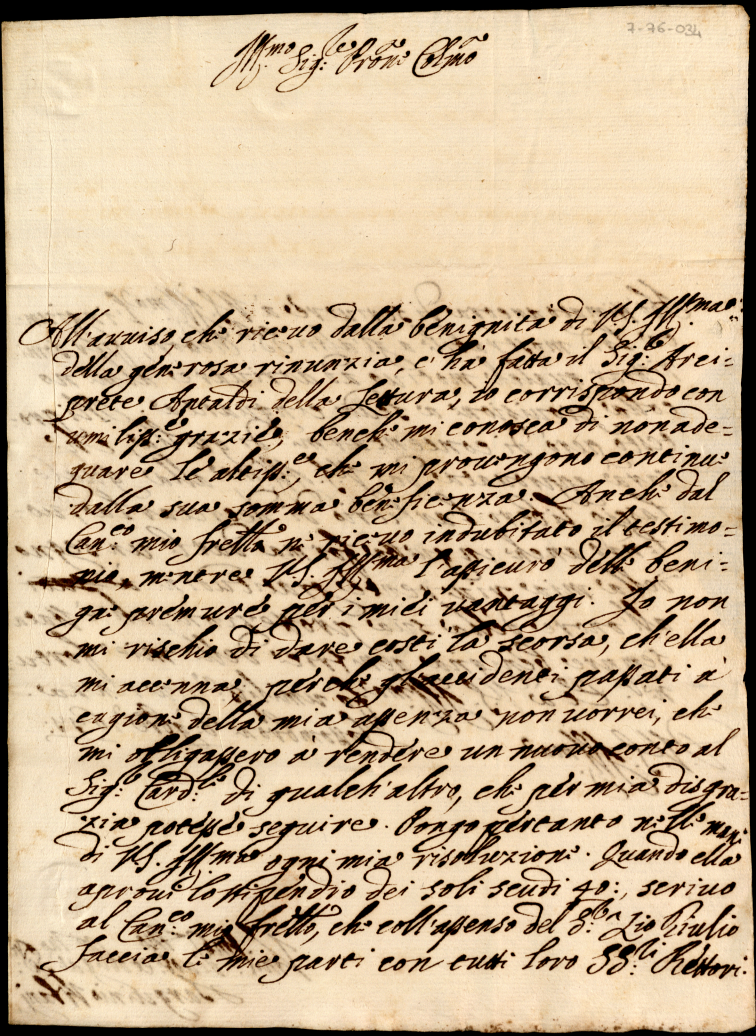 7-76-034
Ill:mo Sig:re Pron:e Colmo
All'auuiso, che riceuo dalla benignità di V.S. Ill:ma
della generosa rinunzia, c'hà fatta il Sig:r Arci=
prete Antaldi della Lettura, io corrispondo con
umiliss:e grazie, benche mi conosca di non ade=
guare le altiss:e, che mi prouengono continue
dalla sua somma beneficenza. Anche dal
Can:co mio frello ne riceuo indubitato il testimo=
nio, mentre V.S. Ill:ma l'assicurò delle beni=
gne premure per i miei uantaggi. Io non
mi rischio di dare costì la scorsa, ch'ella
mi accenna, perche gl'accidenti passati à
cagione della mia assenza non uorrei, che
mi obligassero à rendere un nuouo conto al
Sig:r Card:le di qualch'altro, che per mia disgra=
zia potesse seguire. Pongo pertanto nelle mani
di V.S. Ill:ma ogni mia risoluzione. Quando ella
aproui lo stipendio dei soli scudi 40:, scriuo
al Can:co mio frello, che coll'assenso del S:r Zio Giulio
faccia le mie parti con tutti loro SS:ri Rettori.